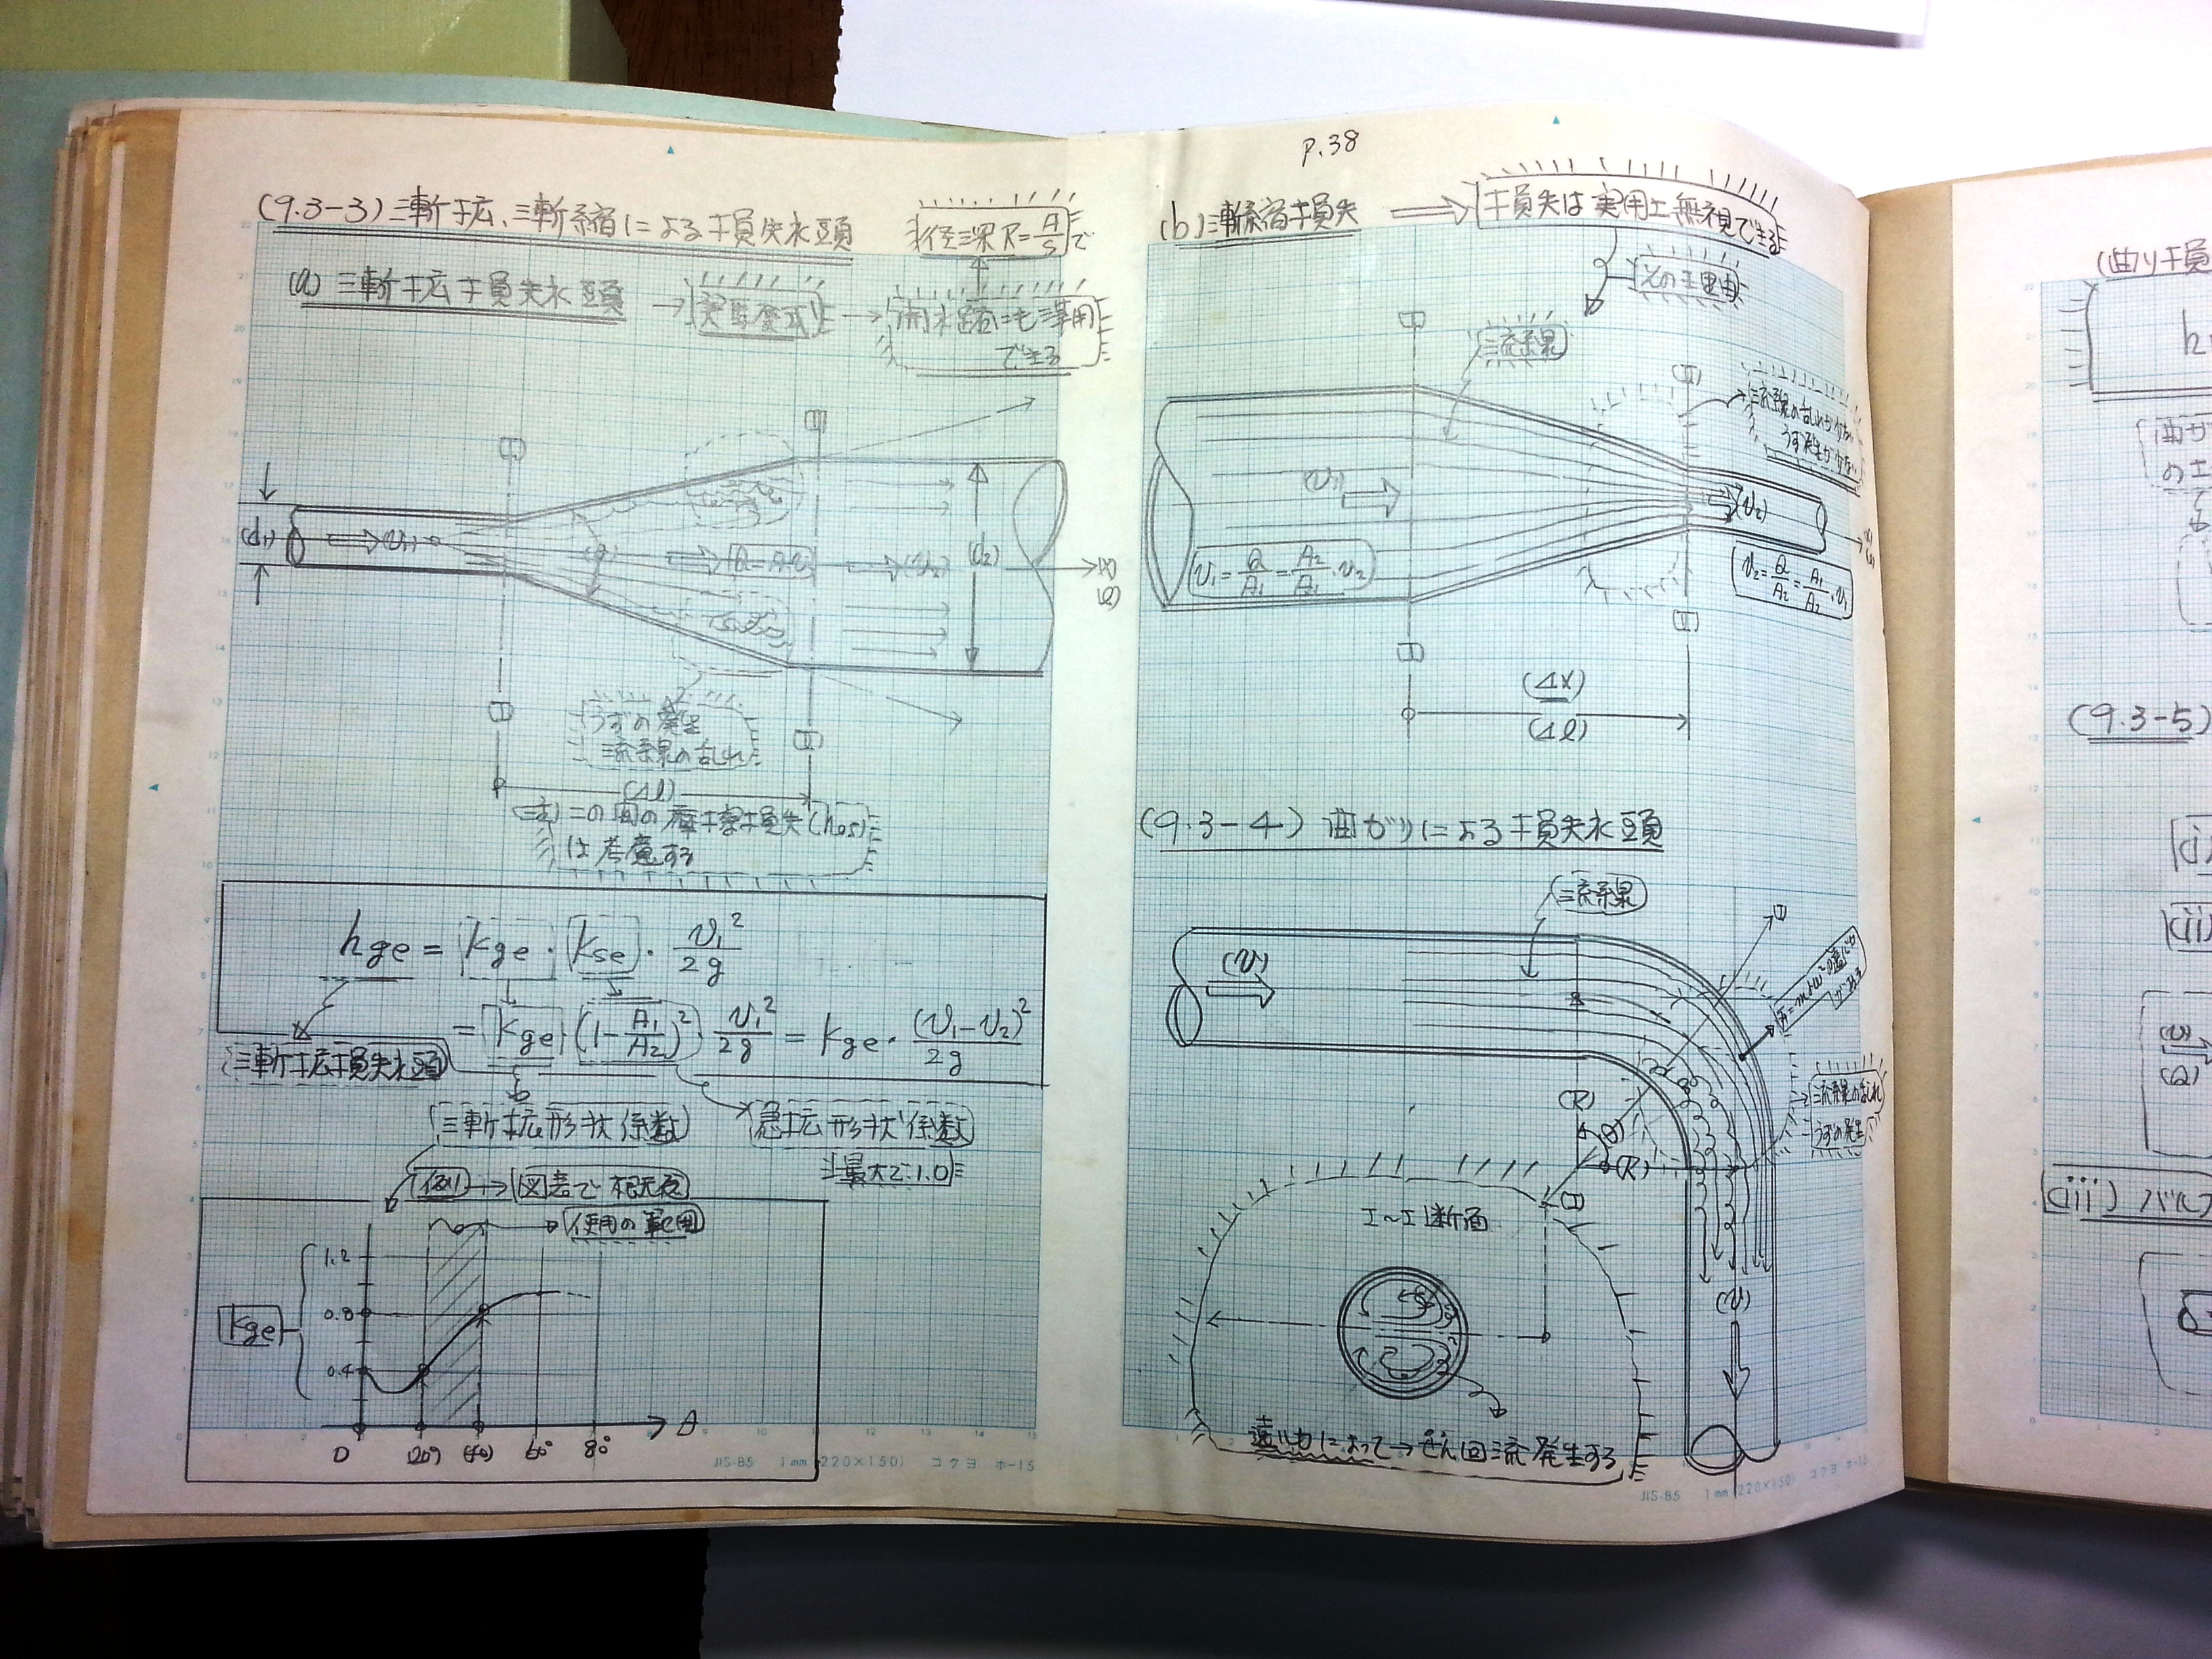 (9.3-3) 漸拡、漸縮による損失水頭
径深R=A/Sで
(a) 漸拡損失水頭
→ 実験公式 →
開水路にも準用
できる
(I)
(II)
(d₁)
(v₁)
(θ)
Q=A・v
(v₂)
(d₂)
うずの発生
流線の乱れ
(I)
(II)
(Δl)
(注) この間の摩擦損失(hos)
は考慮する
hge = kge・kse・v₁²/2g
= kge (1-A₁/A₂)² v₁²/2g = kge・(v₁-v₂)²/2g
漸拡損失水頭
漸拡形状係数
急拡形状係数
最大で1.0
例 → 図表で
使用の範囲
kge
1.2
0.8
0.4
0 (20°) (40) 60° 80° θ
JIS-B5 1mm (220×150) コクヨ ホ-15
P.38
(b) 漸縮損失 ⇒ 損失は実用上無視できる
その主理由
流線
(I)
(II)
流線の乱れが少ない
うず発生が少ない
(v₁)
(v₂)
v₁=Q/A₁=A₂/A₁・v₂
v₂=Q/A₂=A₁/A₂・v₁
(I)
(II)
(Δx)
(Δl)
(9.3-4) 曲がりによる損失水頭
流線
(v)
(I)
F=mrω²の遠心力
流線の乱れ
うずの発生
(R)
(θ)
(R)
(I)
I～I断面
(v)
遠心力によって→せん回流発生する
JIS-B5 1mm (220×150) コクヨ ホ-15
(曲り損
h
曲が
の
(9.3-5)
(i)
(ii)
(v)
(Q)
(iii) バルブ